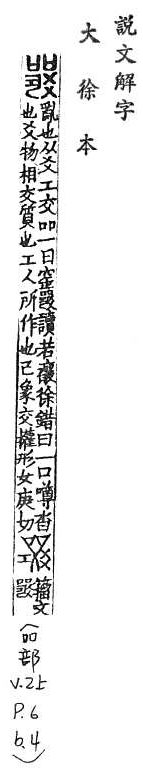 説文解字
大徐本
亂也从爻工交吅一曰窒𤕦讀若禳徐鍇曰二口噂沓
也爻物相交質也工人所作也己象交構形女庚切
籒文
𤕦
(吅部
V.2上
P.6
b.4)